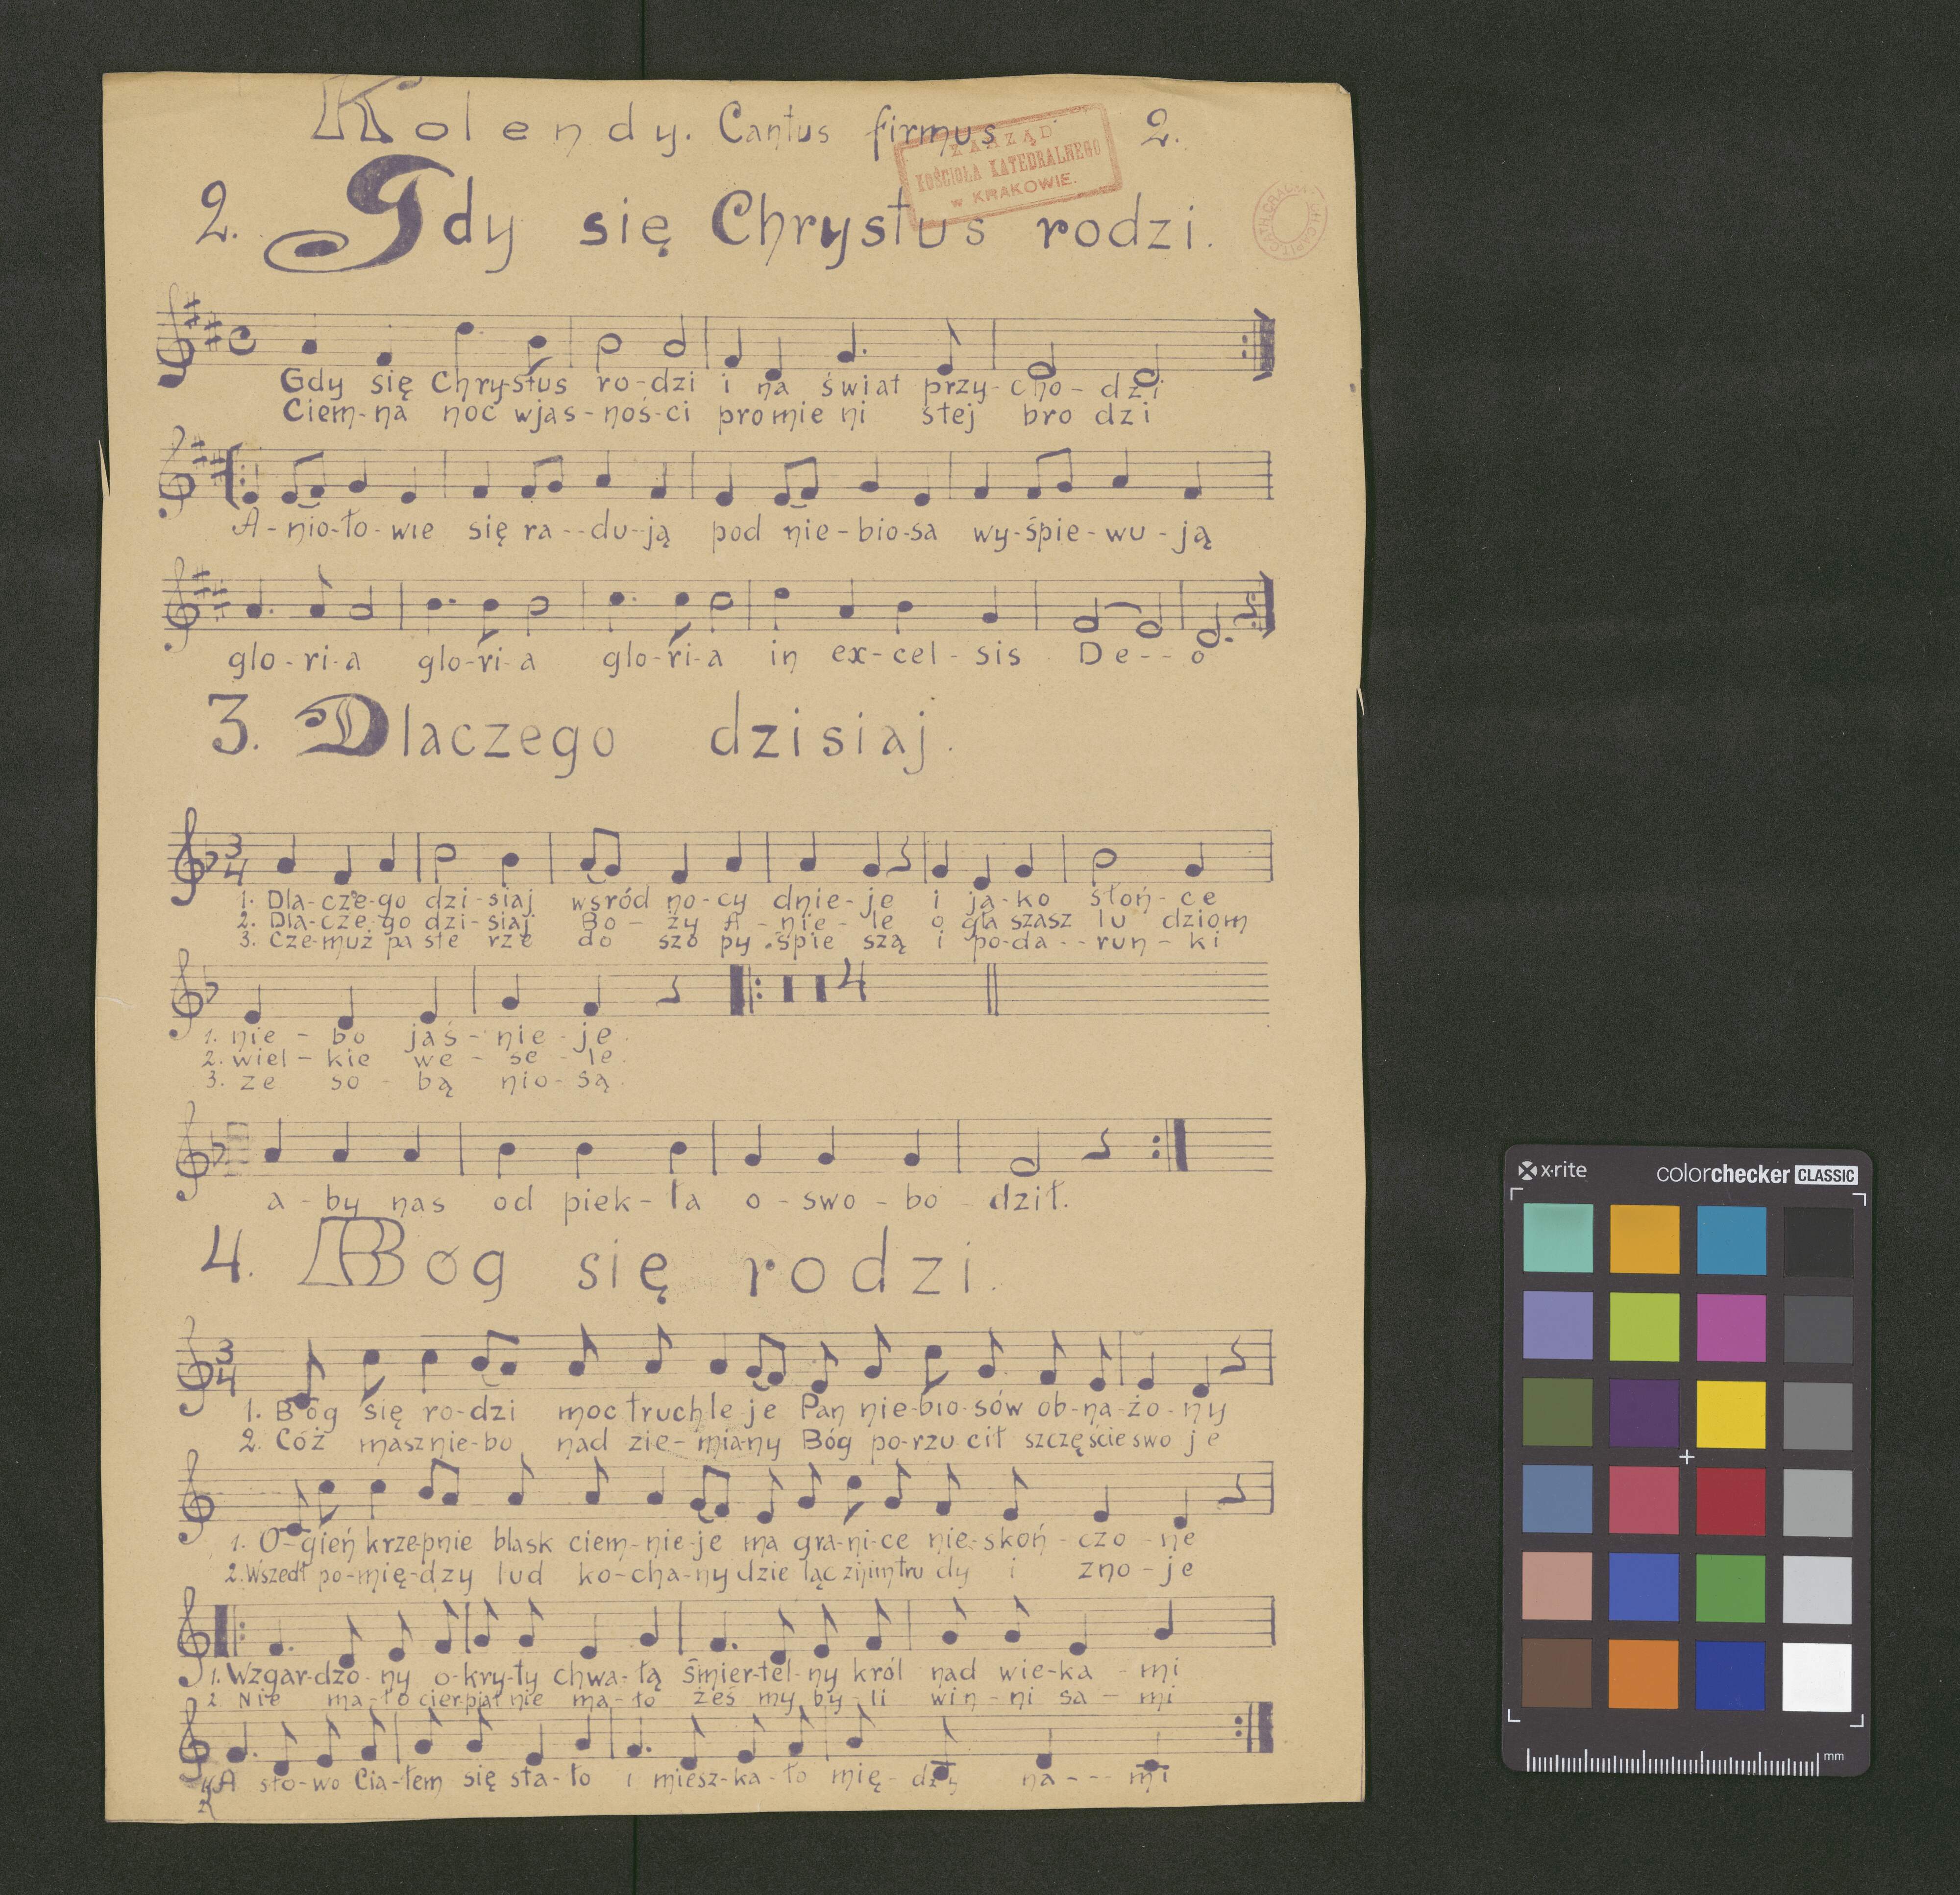 Kolendy. Cantus firmus 2.
ZARZĄD
KOŚCIOŁA KATEDRALNEGO
w KRAKOWIE.
2. Gdy się Chrystus rodzi.
Gdy się Chry-stus ro-dzi i na świat przy-cho-dzi
Ciem-na noc wjas-noś-ci promie ni stej bro dzi
A-nio-ło-wie się ra--du-ją pod nie-bio-sa wy-śpie-wu-ją
glo-ri-a glo-ri-a glo-ri-a in ex-cel-sis De--o
3. Dlaczego dzisiaj.
3 4
1. Dla-cze-go dzi-siaj wsród no-cy dnie-je i ja-ko słoń-ce
2. Dla-cze-go dzi-siaj Bo-ży A-nie-le o gła szasz lu dziom
3. Cze-muż pa ste rze do szo py śpie szą i po-da--run-ki
4
1. nie-bo jaś-nie-je.
2. wiel-kie we-se-le.
3. ze so-bą nio-są.
a-by nas od piek-ła o-swo-bo dził.
4. Bóg się rodzi.
3 4
1. Bóg się ro-dzi moc truchle je Pan nie-bio-sów ob-na-żo-ny
2. Cóż masz nie-bo nad zie-mia-ny Bóg po-rzu cił szczęście swo je
1. O-gień krze-pnie blask ciem-nie-je ma gra-ni-ce nie-skoń-czo-ne
2. Wszedł po-mię-dzy lud ko-cha-ny dzie ląc znim tru dy i zno-je
1. Wzgar-dzo-ny o-kry-ty chwa-łą śmier-tel-ny król nad wie-ka-mi
2 Nie ma-ło cier-piał nie ma-ło żeś my by-li win-ni sa-mi
A sło-wo Cia-łem się sta-ło i miesz-ka-ło mię-dzy na---mi
x·rite colorchecker CLASSIC
mm